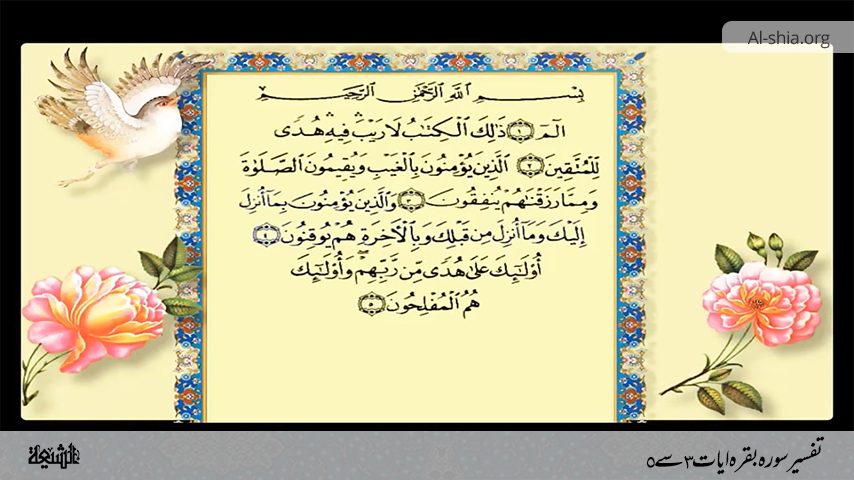 Al-shia.org
بِسْمِ اللَّهِ الرَّحْمَٰنِ الرَّحِيمِ
الٓمٓ ١ ذَٰلِكَ الْكِتَٰبُ لَا رَيْبَ ۛ فِيهِ ۛ هُدًى
لِّلْمُتَّقِينَ ٢ الَّذِينَ يُؤْمِنُونَ بِالْغَيْبِ وَيُقِيمُونَ الصَّلَوٰةَ
وَمِمَّا رَزَقْنَٰهُمْ يُنفِقُونَ ٣ وَالَّذِينَ يُؤْمِنُونَ بِمَا أُنزِلَ
إِلَيْكَ وَمَا أُنزِلَ مِن قَبْلِكَ وَبِالْآخِرَةِ هُمْ يُوقِنُونَ ٤
أُولَٰئِكَ عَلَىٰ هُدًى مِّن رَّبِّهِمْ ۖ وَأُولَٰئِكَ
هُمُ الْمُفْلِحُونَ ٥
تفسیر سورہ بقرہ ایات ۳ سے ۵
الشیعة